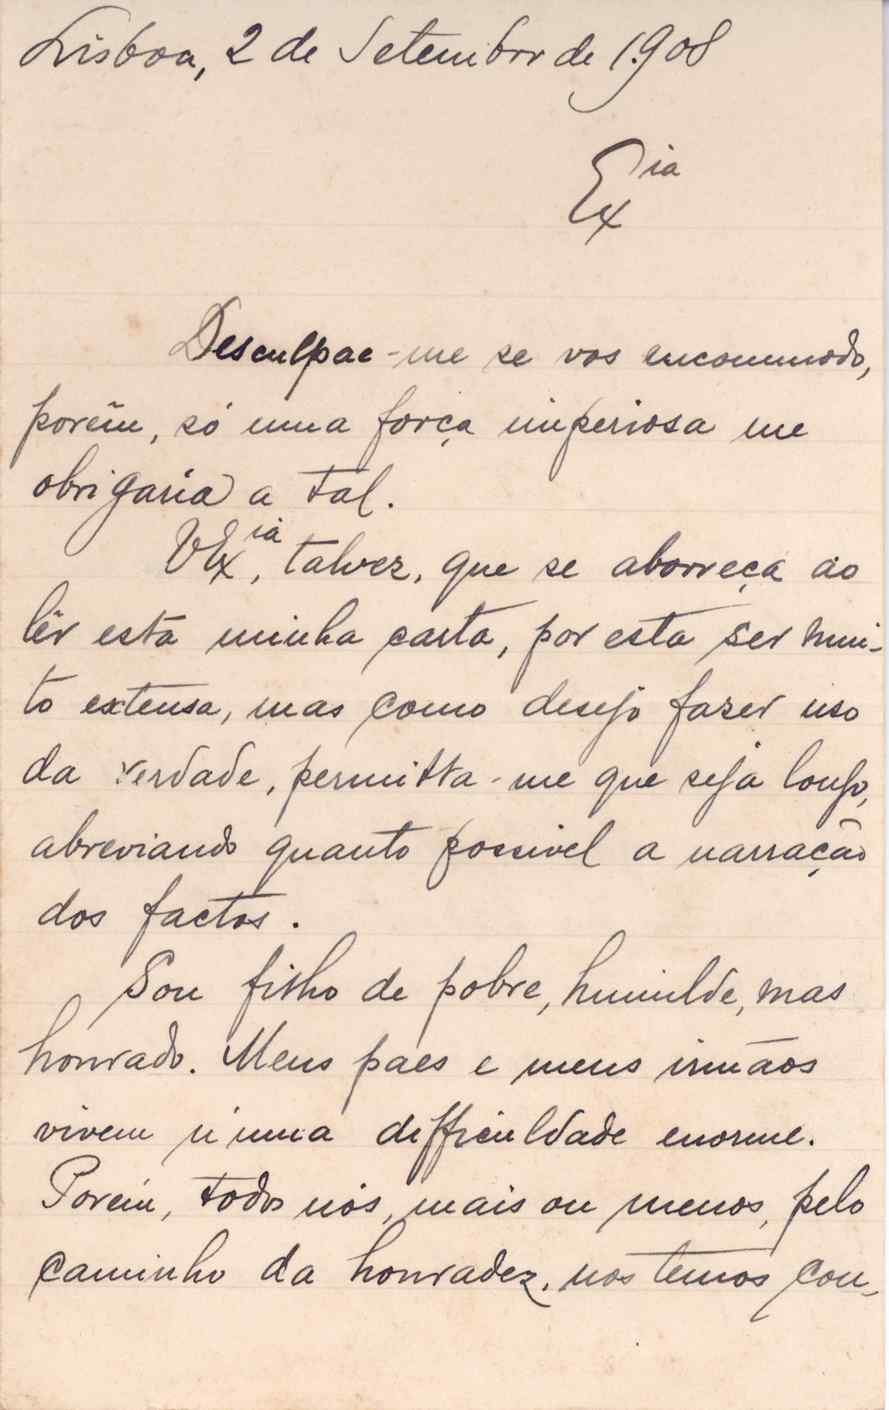 Lisboa, 2 de Setembro de 1908
Ex ia
Desculpae-me se vos encommodo,
porêm, só uma força imperiosa me
obrigaria a tal.
VEx ia, talvez, que se aborreça ao
lêr esta minha carta, por esta ser mui-
to extensa, mas como desejo fazer uso
da verdade, permitta-me que seja longo,
abreviando quanto possivel a narração
dos factos.
Sou filho de pobre, humilde, mas
honrado. Meus paes e meus irmãos
vivem n'uma difficuldade enorme.
Porém, todos nós, mais ou menos, pelo
caminho da honradez, nos temos con-